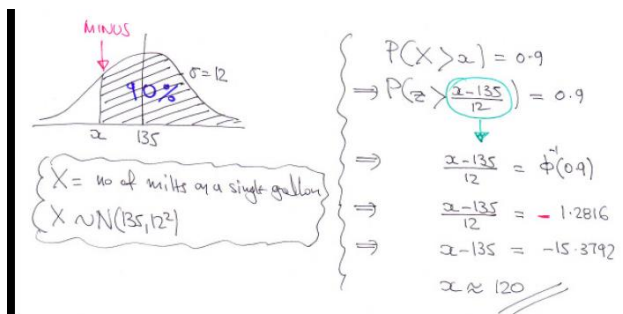 MINUS
σ=12
90%
x 135
X = no of miles on a single gallon
X ~ N(135, 12²)
P(X > x) = 0.9
⇒ P(z > x-135/12) = 0.9
⇒ x-135/12 = Φ⁻¹(0.9)
⇒ x-135/12 = - 1.2816
⇒ x-135 = -15.3792
x ≈ 120